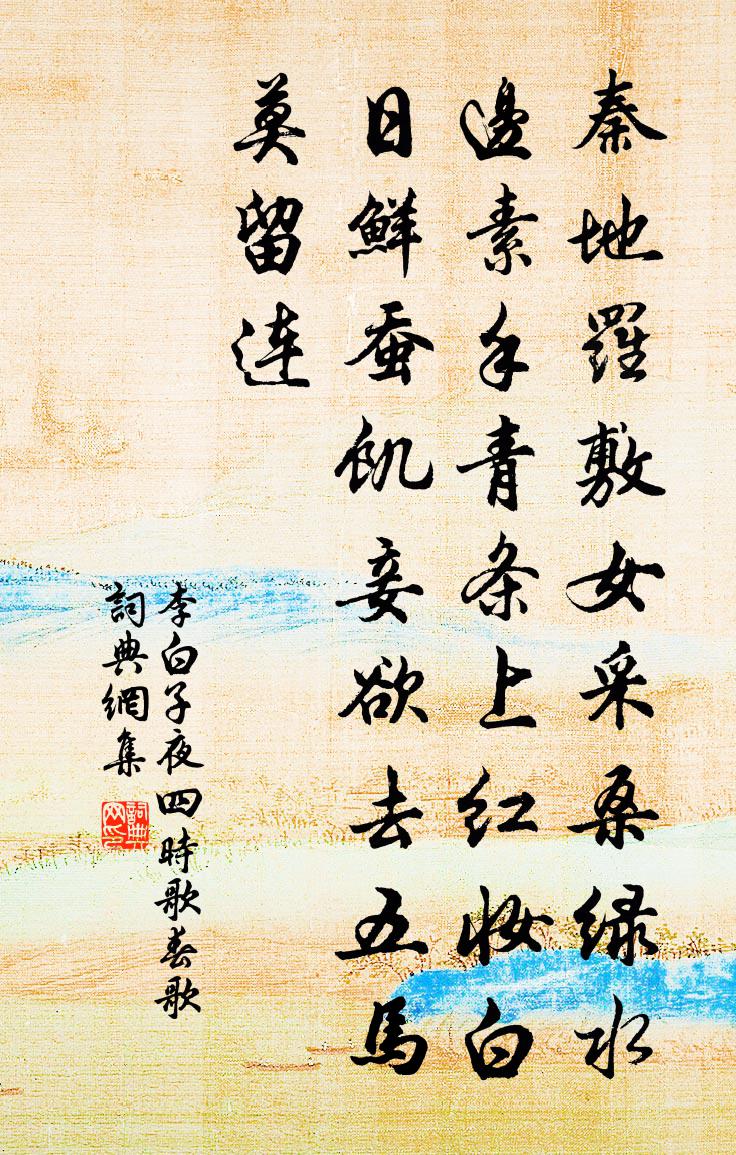 秦地羅敷女采桑绿水
邊素手青条上红妝白
日鮮蚕飢妾欲去五馬
莫留连
李白子夜四時歌春歌
詞典網集